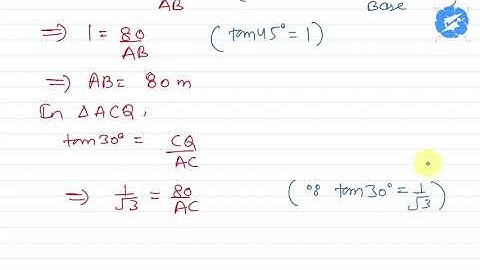 AB Base
⇒ 1 = 80/AB (tan45° = 1)
⇒ AB = 80 m
In △ACQ,
tan30° = CQ/AC
⇒ 1/√3 = 80/AC (∵ tan30° = 1/√3)